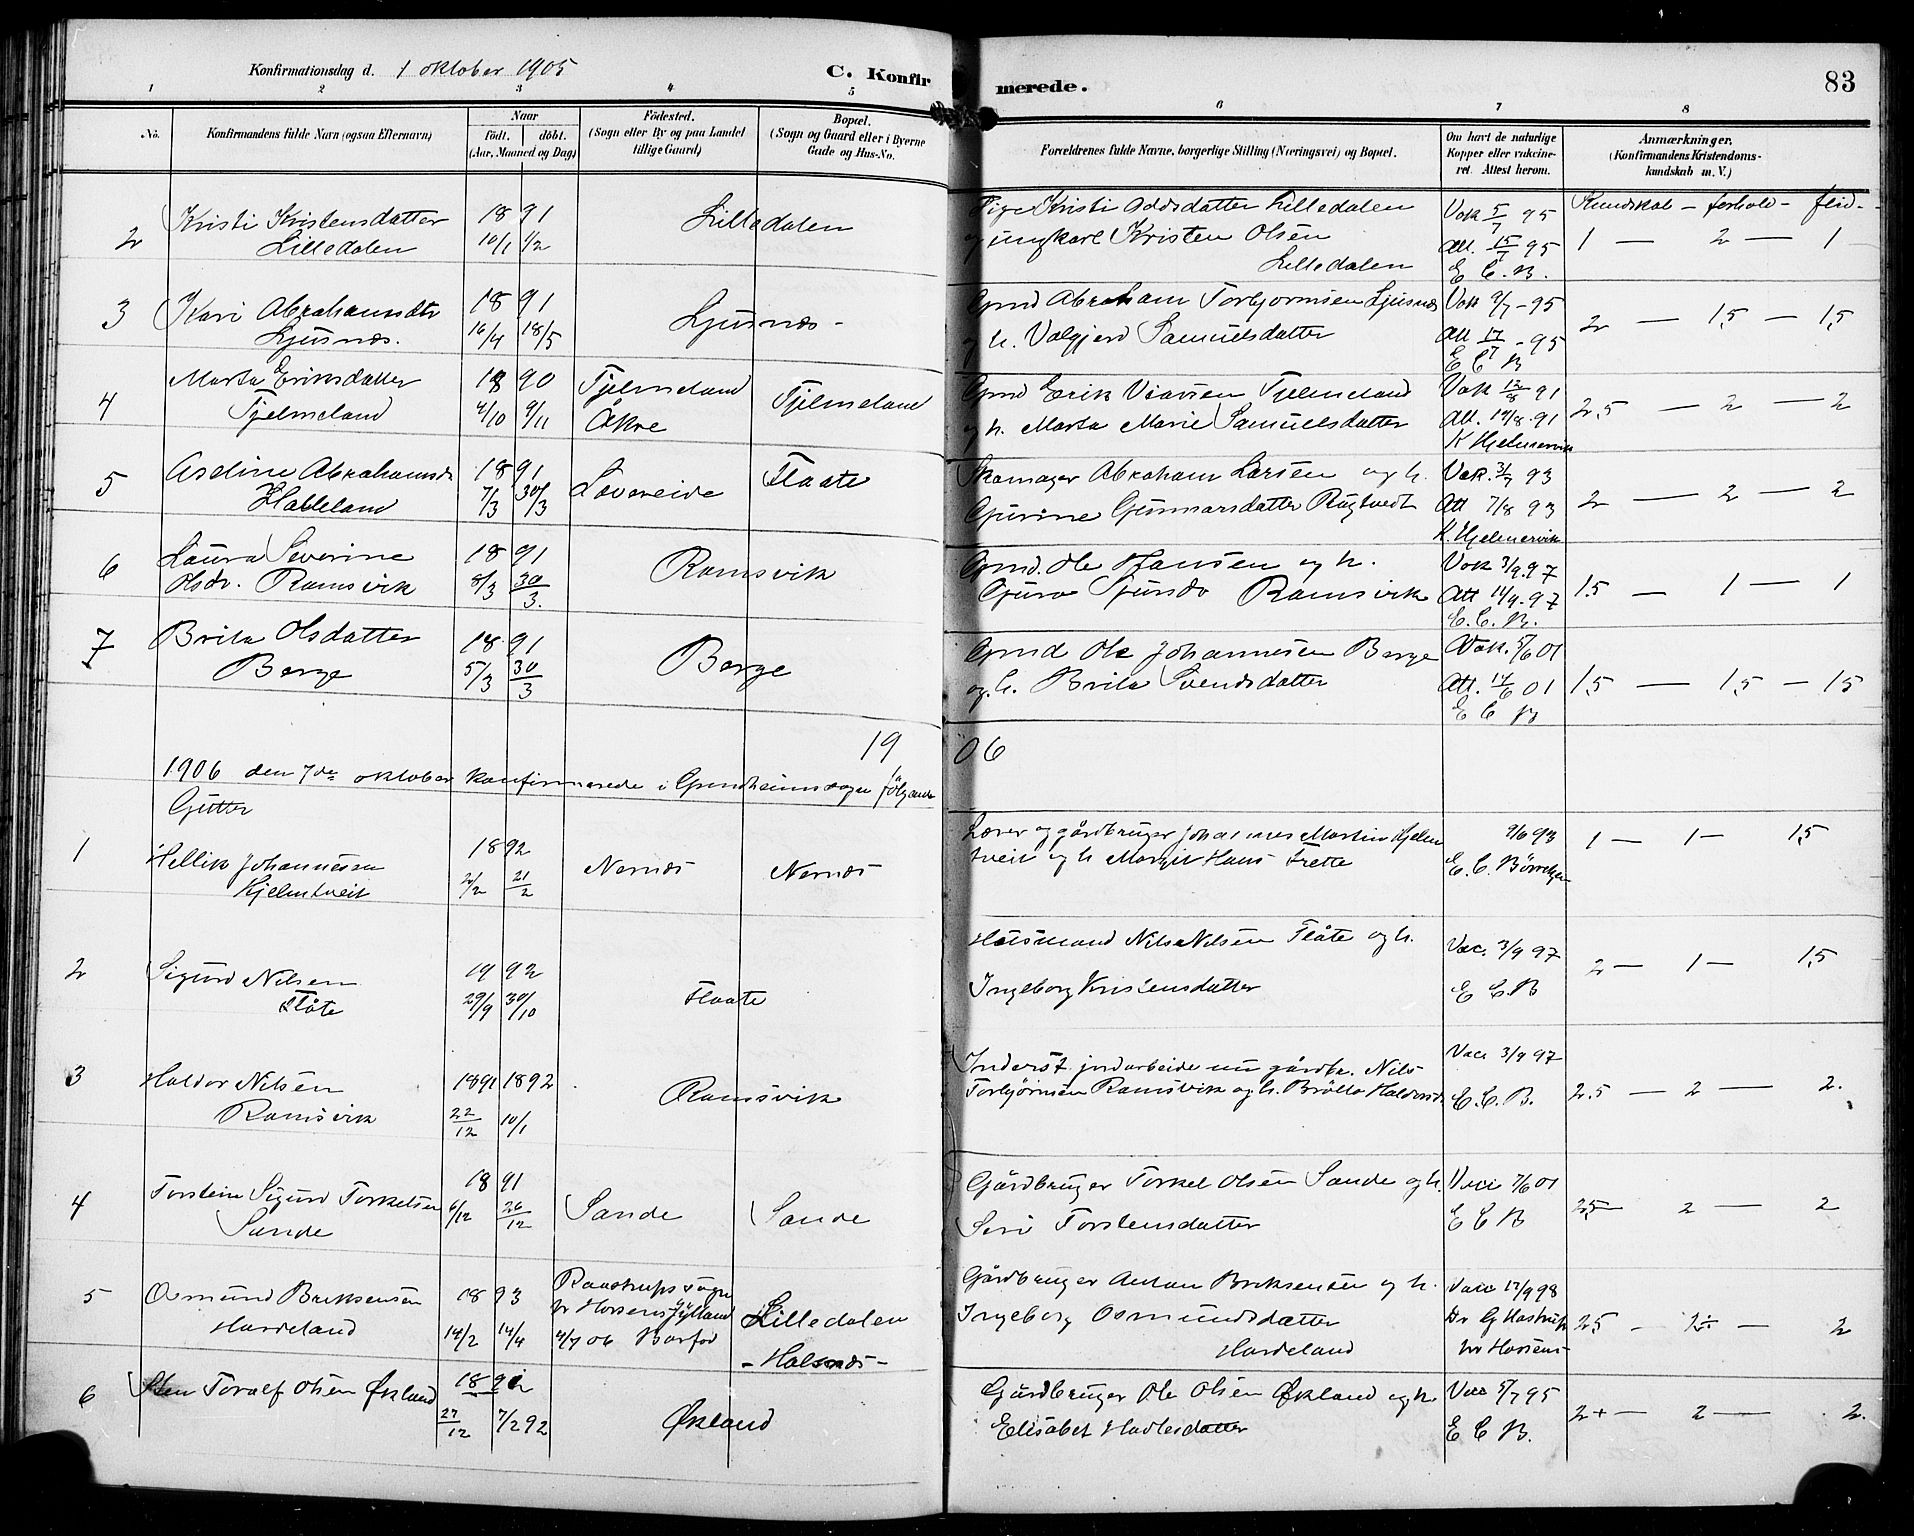 Konfirmationsdag d. 1 oktober 1905 C. Konfir merede. 83
1 2 3 4 5 6 7 8
No. Konfirmandens fulde Navn (ogsaa Efternavn)
Naar
födt. döbt.
(Aar, Maaned og Dag)
Födested.
(Sogn eller By og paa Landet
tillige Gaard)
Bopæl.
(Sogn og Gaard eller i Byerne
Gade og Hus-No.
Forældrenes fulde Navne, borgerlige Stilling (Næringsvei) og Bopæl.
Om havt de naturlige
Kopper eller vakcine-
ret. Attest herom.
Anmærkninger.
(Konfirmandens Kristendoms-
kundskab m. V.)
Kundskab - forhold - flid -
2 Kristi Kristensdatter 18 91 Lilledalen Pige Kristi Oddsdatter Lilledalen Vak 5/7 95
Lilledalen 10/1 1/2 og ungkarl Kristen Olsen Att. 15/7 95 1 — 2 — 1
Lilledalen E C. B.
3 Kari Abrahamsdtr 18 91 Ljusnæs - Gmd Abraham Torbjørnsen Ljusnæs Vak 9/7 - 95
Ljusnæs. 16/4 18/5 og h. Valgjerd Samuelsdatter Att 17/7 - 95 2 — 1,5 — 1,5
E C B
4 Marta Eriksdatter 18 90 Tjelmeland Tjelmeland Gmd Erik Tjelmeland Vak 12/8 91
Tjelmeland 4/10 9/11 Åkre og h. Marta Marie Samuelsdatter Att. 14/8 91 2,5 — 2 — 2
K Hjelmervik
5 Aseline Abrahamsd 18 91 Lovereide Flaate Skomager Abraham Larsen og h. Vak. 3/7 93
Halleland 7/3 30/3 Gurine Gunnarsdatter Røgtvedt Att 7/8 93 2 — 2 — 2
K. Hjelmervik
6 Laura Severine 18 91 Ramsvik Gmd. Ole Hansen og h. Vak 3/9.97
Olsdr. Ramsvik 8/3 30/3. Guro Sjursdr Ramsvik Att 11/9.97 1,5 — 1 — 1
E. C. B.
7 Brita Olsdatter 18 91 Berge Gmd Ole Johannesen Berge Vak. 5/6 01
Berge 5/3 30/3 og h. Brita Svendsdatter Att. 14/6 01 1,5 — 1,5 — 1,5
E C B
19 06
1906 den 7de oktober konfirmerede i Grindheimsogn følgende
Gutter
1 Hellik Johannessen 18 92 Nernes Nernes Lærer og gårdbruger Johannes Martin Hjelm 9/6 93 1 — 1 — 1,5
Hjelmtveit 2/2 21/2 tveit og h Margit Hans Frette E. C. Börretzen
2 Sigurd Nilsen 19 92 Flaate Husmand Nils Nilsen Flåte og h. Vac. 3/9 97 2 — 1 — 1,5
Flåte 29/9 30/10 Ingeborg Kristensdatter E C. B
3 Haldor Nilsen 1891 1892 Ramsvik Inderst. jordarbeide nu gårdbr. Nils Vacc 3/9 97
Ramsvik 22/12 10/1 Torbjörnsen Ramsvik og h. Brölla Haldorsd E. C. B. 2.5 — 2 — 2.
4 Torstein Sigurd Torkelsen 18 91 Sande Sande Gårdbruger Torkel Olsen Sande og h. Vacc 7/6 01
Sande 6/12 26/12 Siri Torstensdatter E C B 2,5 — 2 — 2
5 Osmund Breksensen 18 93 Raastrups sogn Lilledalen Gårdbruger Anton Breksensen og h. Vacc 17/9 98
Hardeland 14/2 14/4 pr Horsens Jylland Ingeborg Osmundsdatter Dr G Hastrup 2,5 — — 2
4/7 06 Barfod - Halsnæs - Hardeland pr Horsens
6 Sten Toralf Olsen Økland 18 91 Økland Gårdbruger Ole Olsen Økland og h. Vac 5/7 95
27/12 7/2 92 Elisabet Hadlesdatter E C B. 2+ — 2 — 2.